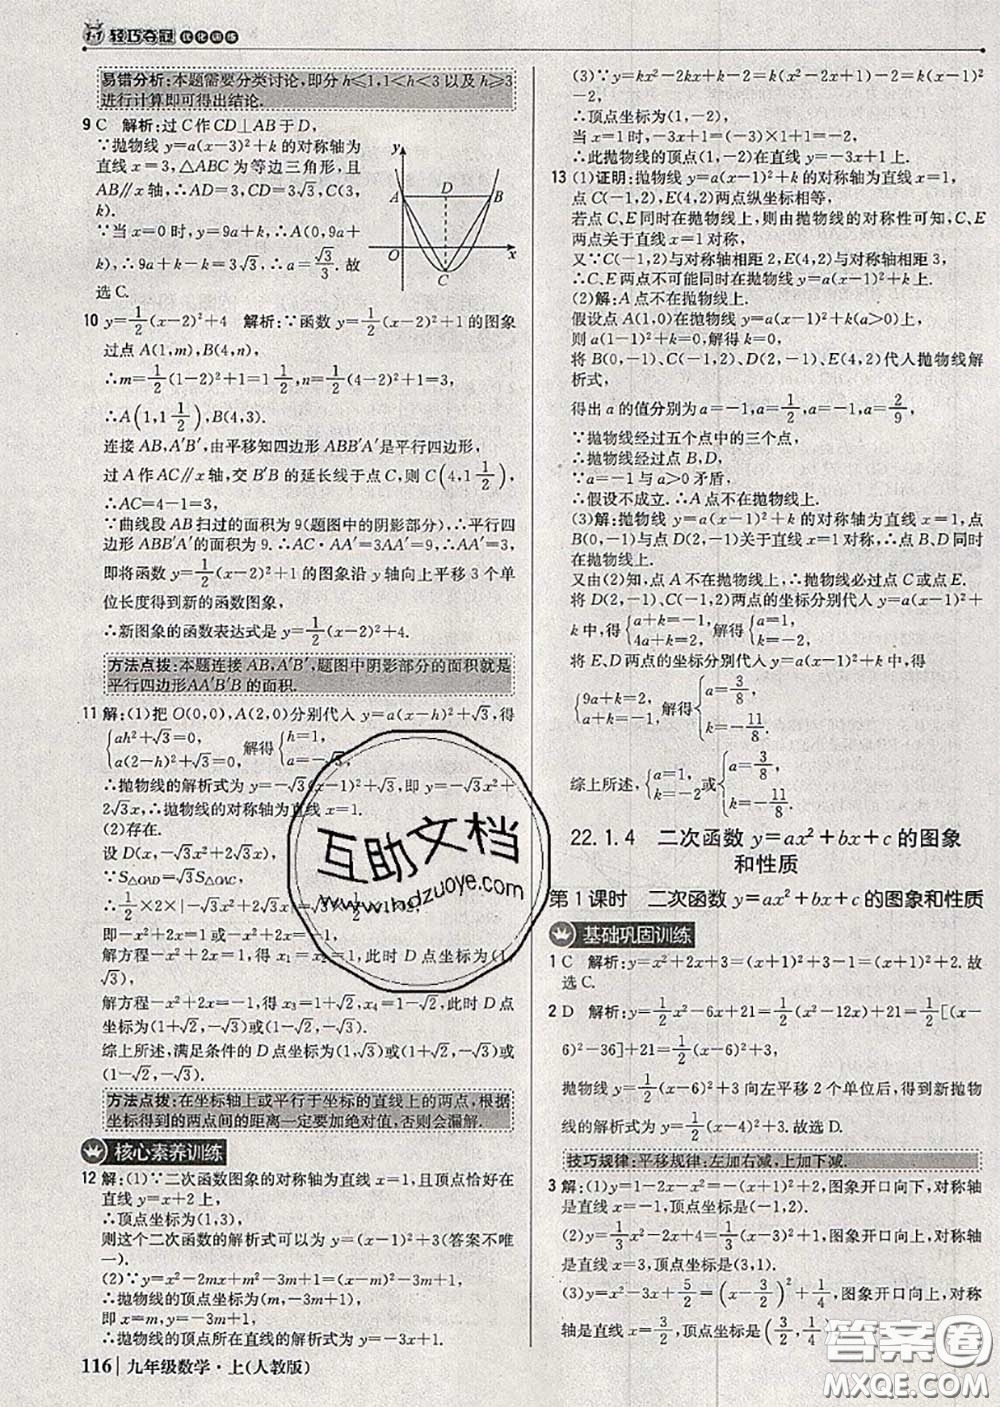 1+1 轻巧夺冠 优化训练
易错分析:本题需要分类讨论,即分 h⩽1,1<h<3 以及 h⩾3
进行计算即可得出结论.
9 C 解析:过 C 作 CD⊥AB 于 D,
∵抛物线 y=a(x-3)²+k 的对称轴为
直线 x=3,△ABC 为等边三角形,且
AB∥x 轴,∴AD=3,CD=3√3,C(3,
k).
∵当 x=0 时,y=9a+k,∴A(0,9a+
k),∴9a+k-k=3√3,∴a=√3/3.故
选 C.
y
A D B
O x
C
10 y=1/2(x-2)²+4 解析:∵函数 y=1/2(x-2)²+1 的图象
过点 A(1,m),B(4,n),
∴m=1/2(1-2)²+1=1 1/2,n=1/2(4-2)²+1=3,
∴A(1,1 1/2),B(4,3).
连接 AB,A′B′,由平移知四边形 ABB′A′是平行四边形,
过 A 作 AC∥x 轴,交 B′B 的延长线于点 C,则 C(4,1 1/2),
∴AC=4-1=3.
∵曲线段 AB 扫过的面积为 9(题图中的阴影部分),∴平行四
边形 ABB′A′的面积为 9.∴AC·AA′=3AA′=9,∴AA′=3,
即将函数 y=1/2(x-2)²+1 的图象沿 y 轴向上平移 3 个单
位长度得到新的函数图象,
∴新图象的函数表达式是 y=1/2(x-2)²+4.
方法点拨:本题连接 AB,A′B′,题图中阴影部分的面积就是
平行四边形AA′B′B 的面积.
11 解:(1)把 O(0,0),A(2,0)分别代入 y=a(x-h)²+√3,得
{ah²+√3=0, a(2-h)²+√3=0, 解得{h=1, a=-√3,
∴抛物线的解析式为 y=-√3(x-1)²+√3,即 y=-√3x²+
2√3x,∴抛物线的对称轴为直线 x=1.
(2)存在.
设 D(x,-√3x²+2√3x),
∵S△OAD=√3S
∴1/2×2×|-√3x²+2√3x|
即-x²+2x=1 或-x²+2x=-1.
解方程-x²+2x=1,得 x₁=x₂=1,此时 D 点坐标为(1,
√3),
解方程-x²+2x=-1,得 x₃=1+√2,x₄=1-√2,此时 D 点
坐标为(1+√2,-√3)或(1-√2,-√3).
综上所述,满足条件的 D 点坐标为(1,√3)或(1+√2,-√3)或
(1-√2,-√3).
方法点拨:在坐标轴上或平行于坐标的直线上的两点,根据
坐标得到的两点间的距离一定要加绝对值,否则会漏解.
核心素养训练
12 解:(1)∵二次函数图象的对称轴为直线 x=1,且顶点恰好在
直线 y=x+2 上,
∴顶点坐标为(1,3),
则这个二次函数的解析式可以为 y=(x-1)²+3(答案不唯
一).
(2)∵y=x²-2mx+m²-3m+1=(x-m)²-3m+1,
∴抛物线的顶点坐标为(m,-3m+1),
即 x=m,y=-3m+1,
∴抛物线的顶点所在直线的解析式为 y=-3x+1.
116 九年级数学·上(人教版)
(3)∵y=kx²-2kx+k-2=k(x²-2x+1)-2=k(x-1)²
-2,
∴顶点坐标为(1,-2).
当 x=1 时,-3x+1=(-3)×1+1=-2,
∴此抛物线的顶点(1,-2)在直线 y=-3x+1 上.
13 (1)证明:抛物线 y=a(x-1)²+k 的对称轴为直线 x=1,
点 C(-1,2),E(4,2)两点纵坐标相等,
若点 C、E 同时在抛物线上,则由抛物线的对称性可知,C、E
两点关于直线 x=1 对称,
又∵C(-1,2)与对称轴相距 2,E(4,2)与对称轴相距 3,
∴C、E 两点不可能同时在抛物线 y=a(x-1)²+k 上.
(2)解:A 点不在抛物线上.
假设点 A(1,0)在抛物线 y=a(x-1)²+k(a>0)上,
则 a(1-1)²+k=0,解得 k=0.
将 B(0,-1)、C(-1,2)、D(2,-1)、E(4,2)代入抛物线解
析式,
得出 a 的值分别为 a=-1,a=1/2,a=-1,a=2/9,
∵抛物线经过五个点中的三个点,
∴抛物线经过点 B,D,
∴a=-1 与 a>0 矛盾,
∴假设不成立.∴A 点不在抛物线上.
(3)解:抛物线 y=a(x-1)²+k 的对称轴为直线 x=1,点
B(0,-1)与点 D(2,-1)关于直线 x=1 对称,∴点 B、D 同时
在抛物线上.
又由(2)知,点 A 不在抛物线上,∴抛物线必过点 C 或点 E.
将 D(2,-1)、C(-1,2)两点的坐标分别代入 y=a(x-1)²+
k 中,得{a+k=-1, 4a+k=2, 解得{a=1, k=-2.
将 E、D 两点的坐标分别代入 y=a(x-1)²+k 中,得
{9a+k=2, a+k=-1, 解得{a=3/8, k=-11/8.
综上所述,{a=1, k=-2 或{a=3/8, k=-11/8.
22.1.4 二次函数 y=ax²+bx+c 的图象
和性质
第 1 课时 二次函数 y=ax²+bx+c 的图象和性质
基础巩固训练
1 C 解析:y=x²+2x+3=(x+1)²+3-1=(x+1)²+2.故
选 C.
2 D 解析:y=1/2x²-6x+21=1/2(x²-12x)+21=1/2[(x-
6)²-36]+21=1/2(x-6)²+3,
抛物线 y=1/2(x-6)²+3 向左平移 2 个单位后,得到新抛物
线的解析式为 y=1/2(x-4)²+3.故选 D.
技巧规律:平移规律:左加右减,上加下减.
3 解:(1)y=1-2x-x²=-(x+1)²+2,图象开口向下,对称轴
是直线 x=-1,顶点坐标是(-1,2).
(2)y=1/3x²-2x+4=1/3(x-3)²+1,图象开口向上,对称轴
是直线 x=3,顶点坐标是(3,1).
(3)y=-x²+3x+5/2=-(x-3/2)²+1/4,图象开口向上,对称
轴是直线 x=3/2,顶点坐标是(3/2,1/4)
互助文档
www.hdzuoye.com
答案圈
MXQE.COM